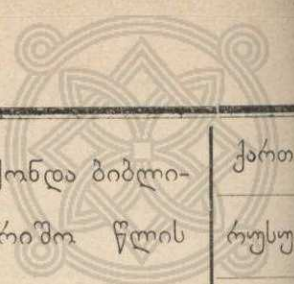 ქონდა ბიბლი-
რიშო წლის
ქართ
რუსუ